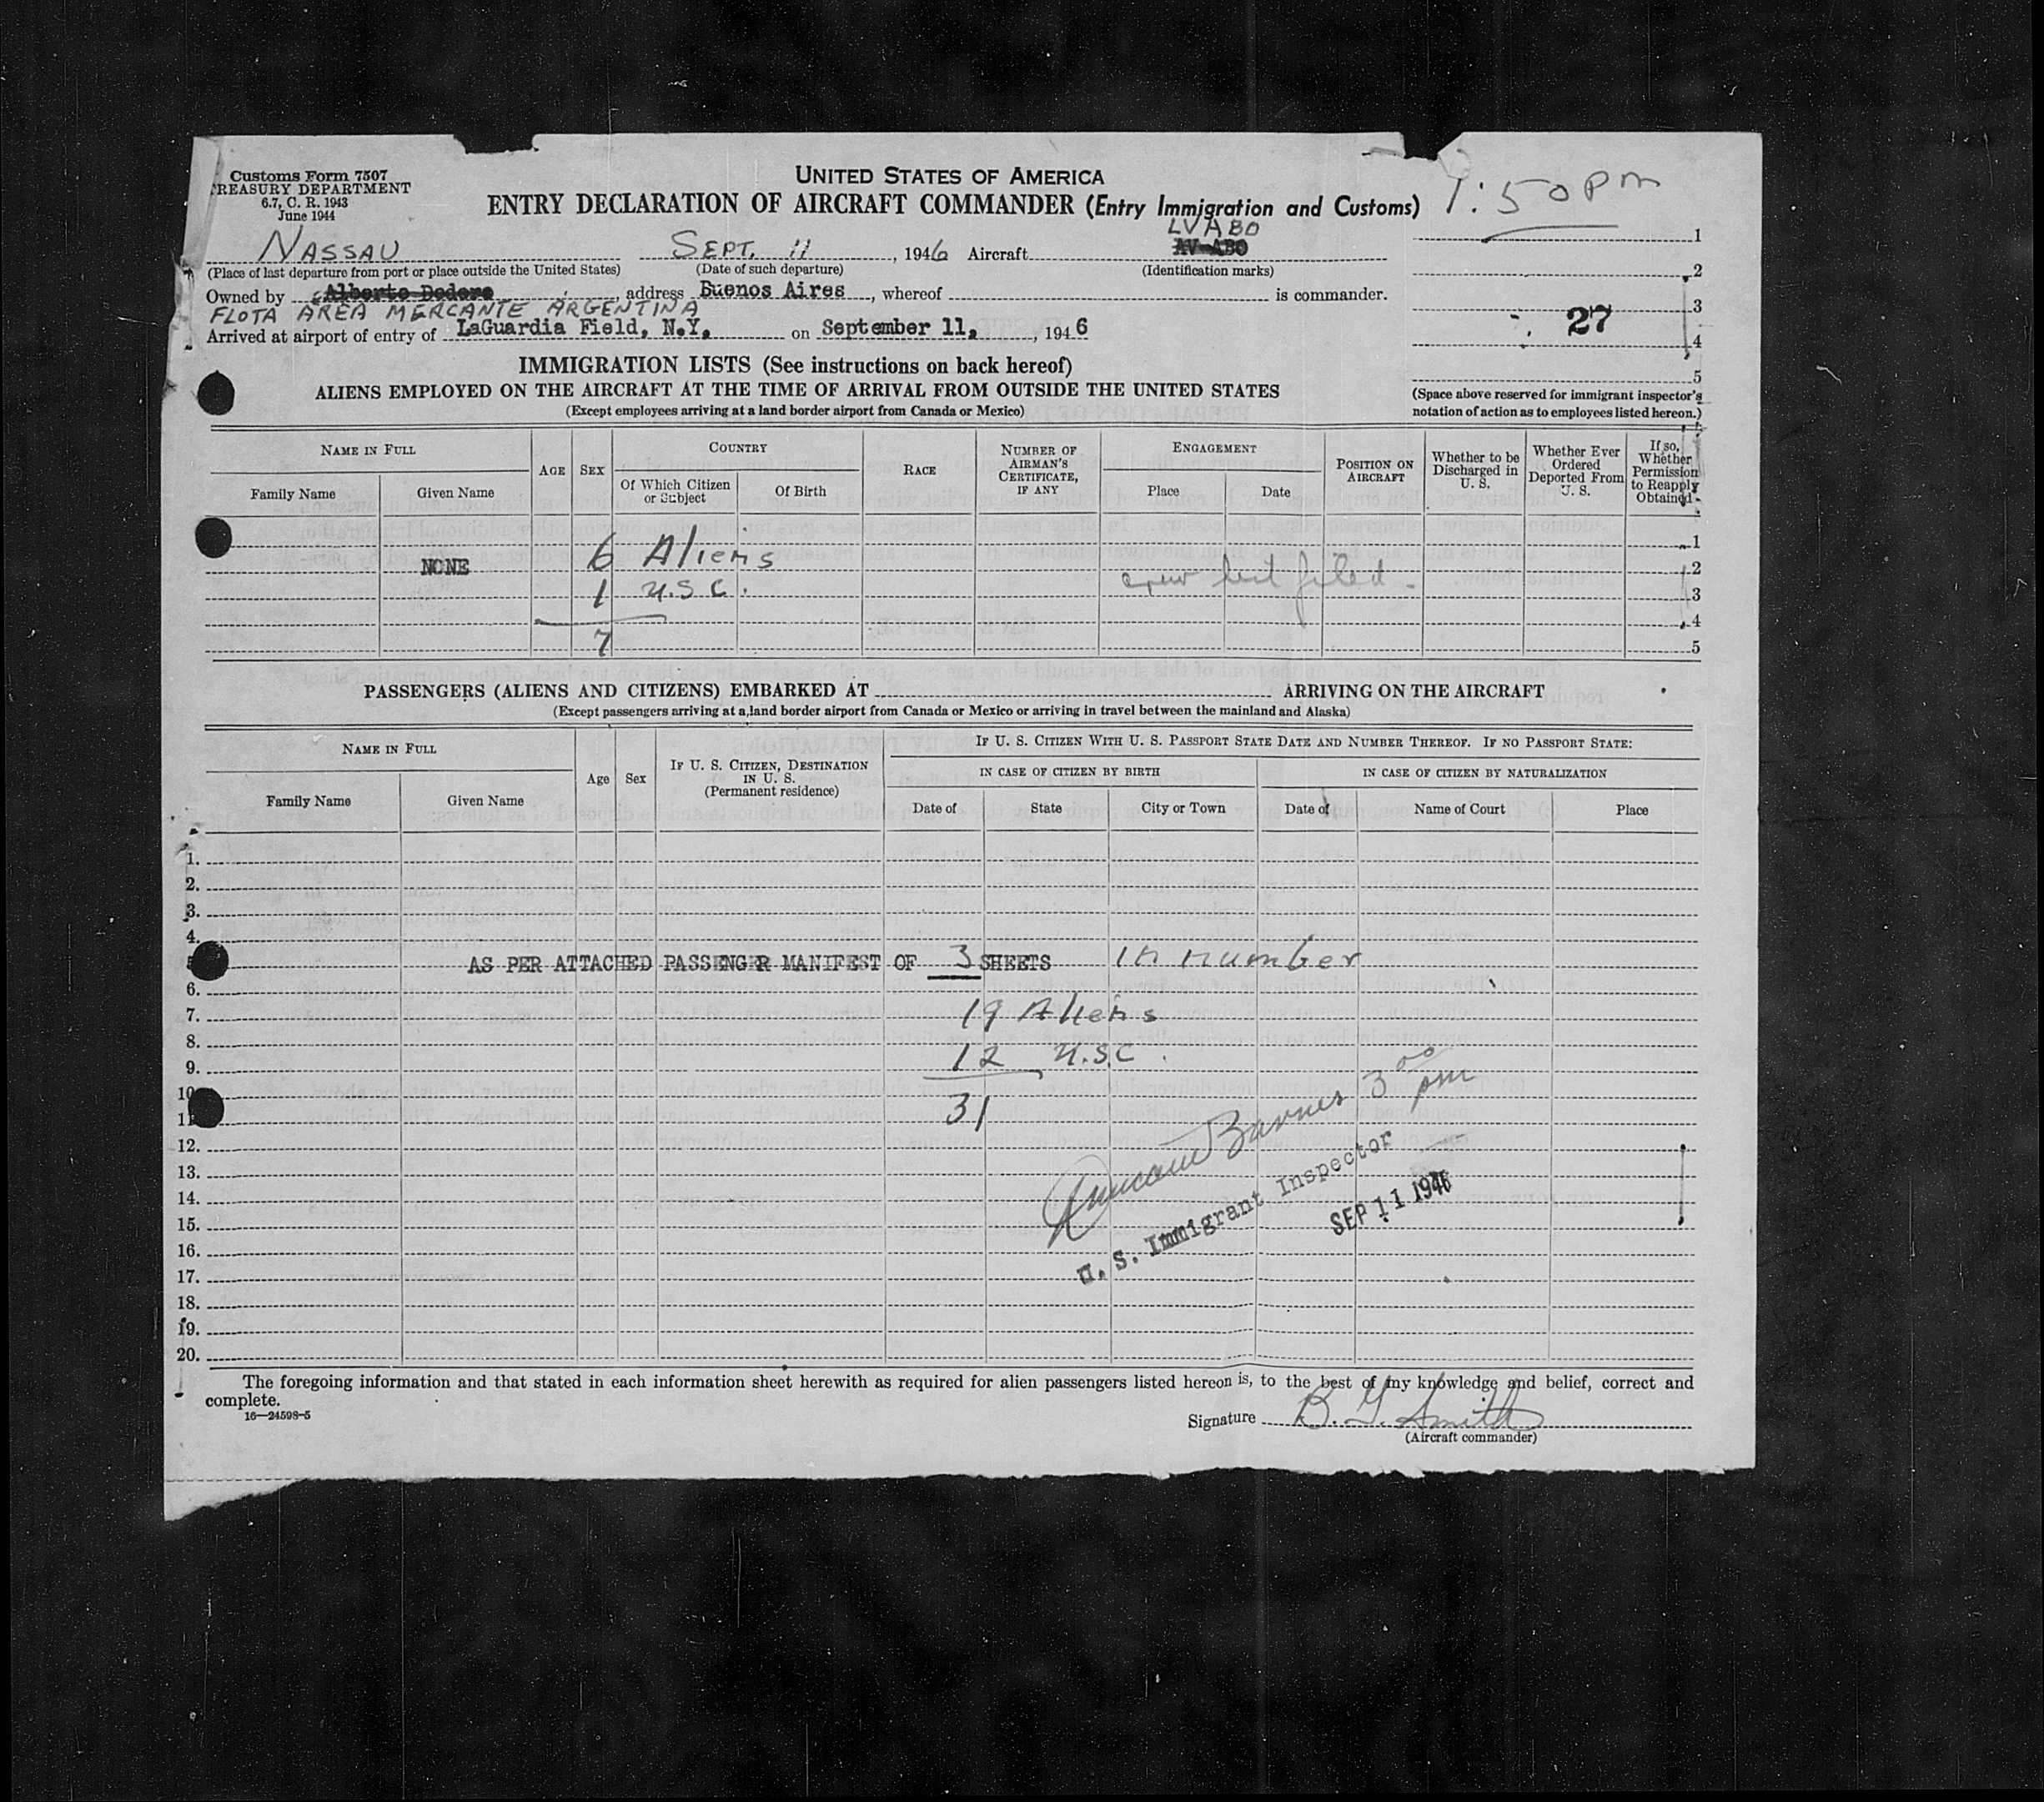 Customs Form 7507
TREASURY DEPARTMENT
6.7, C. R. 1943
June 1944
UNITED STATES OF AMERICA
ENTRY DECLARATION OF AIRCRAFT COMMANDER (Entry Immigration and Customs)
1:50 PM
NASSAU SEPT. 11, 1946 Aircraft LVABO AV-ABO
(Place of last departure from port or place outside the United States) (Date of such departure) (Identification marks)
Owned by Alberto Dodero, address Buenos Aires, whereof is commander.
FLOTA AREA MERCANTE ARGENTINA
Arrived at airport of entry of LaGuardia Field, N.Y. on September 11, 1946
1
2
3
27
4
5
(Space above reserved for immigrant inspector's
notation of action as to employees listed hereon.)
IMMIGRATION LISTS (See instructions on back hereof)
ALIENS EMPLOYED ON THE AIRCRAFT AT THE TIME OF ARRIVAL FROM OUTSIDE THE UNITED STATES
(Except employees arriving at a land border airport from Canada or Mexico)
NAME IN FULL
Family Name Given Name
AGE SEX
COUNTRY
Of Which Citizen or Subject Of Birth
RACE
NUMBER OF AIRMAN'S CERTIFICATE, IF ANY
ENGAGEMENT
Place Date
POSITION ON AIRCRAFT
Whether to be Discharged in U. S.
Whether Ever Ordered Deported From U. S.
If so, Whether Permission to Reapply Obtained
1
6 Aliens
NONE crew list filed. 2
1 U.S.C. 3
4
7 5
PASSENGERS (ALIENS AND CITIZENS) EMBARKED AT ARRIVING ON THE AIRCRAFT
(Except passengers arriving at a land border airport from Canada or Mexico or arriving in travel between the mainland and Alaska)
NAME IN FULL
Family Name Given Name
Age Sex
IF U. S. CITIZEN, DESTINATION IN U. S. (Permanent residence)
IF U. S. CITIZEN WITH U. S. PASSPORT STATE DATE AND NUMBER THEREOF. IF NO PASSPORT STATE:
IN CASE OF CITIZEN BY BIRTH IN CASE OF CITIZEN BY NATURALIZATION
Date of State City or Town Date of Name of Court Place
1.
2.
3.
4.
AS PER ATTACHED PASSENGER MANIFEST OF 3 SHEETS in number
6.
7. 19 Aliens
8.
9. 12 U.S.C.
10
11 31
12.
13.
14.
15.
16.
17.
18.
19.
20.
Barnes 3 00 pm
U. S. Immigrant Inspector
SEP 11 1946
The foregoing information and that stated in each information sheet herewith as required for alien passengers listed hereon is, to the best of my knowledge and belief, correct and
complete.
16—24598-5
Signature B. G. Smith
(Aircraft commander)